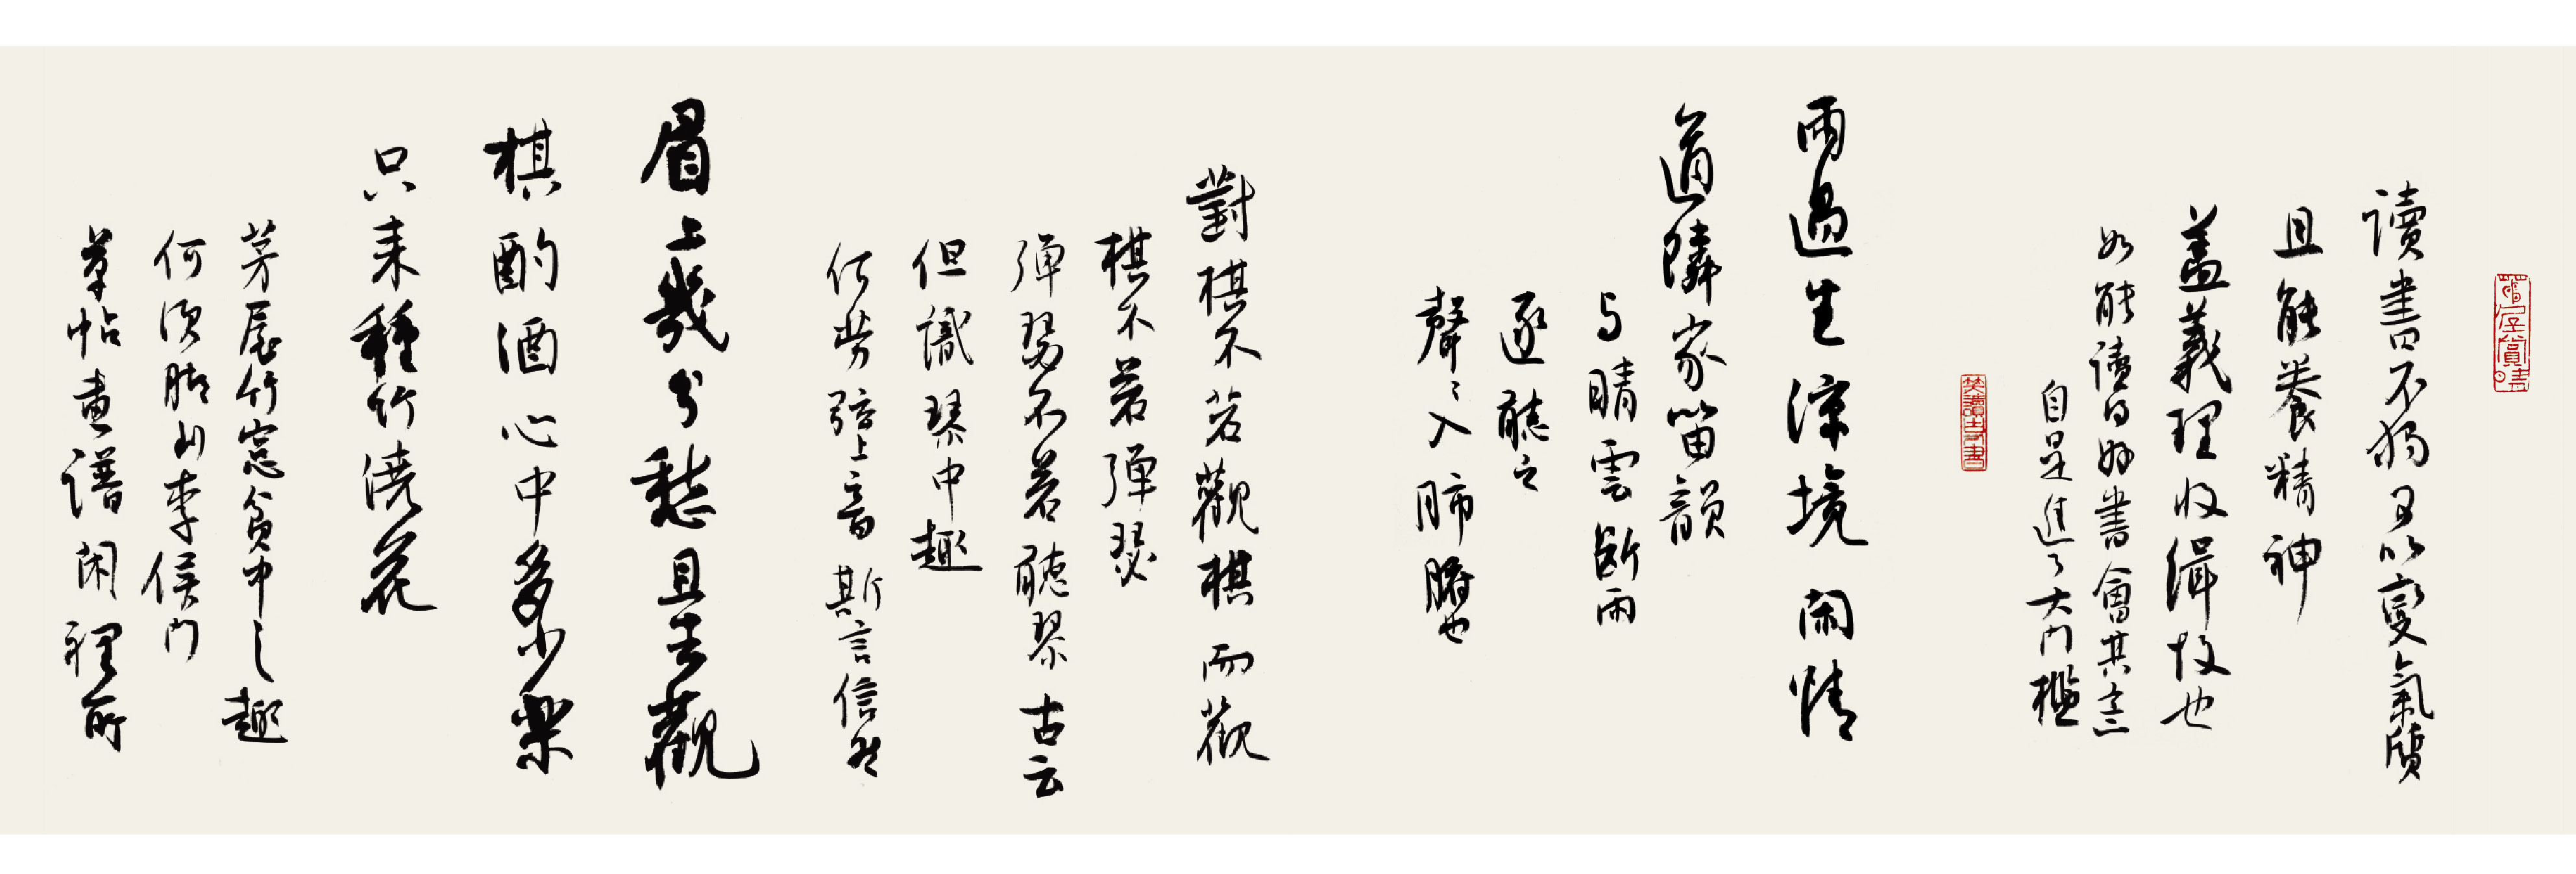 讀書不獨可以變氣質
且能養精神
蓋義理收緝故也
如能讀得好書會其意
自是進了大門檻
笑讀古書
雨過生涼境閑情
適隣家笛韻
与晴雲斷雨
逐聽之
聲々入肺腑也
對棋不若觀棋而觀
棋不若彈瑟
彈瑟不若聽琴古云
但識琴中趣
何勞弦上音斯言信然
眉上幾分愁且去觀
棋酌酒心中多少樂
只来種竹澆花
茅屋竹窓貧中之趣
何須脚到李侯門
草帖畫譜閑裡所